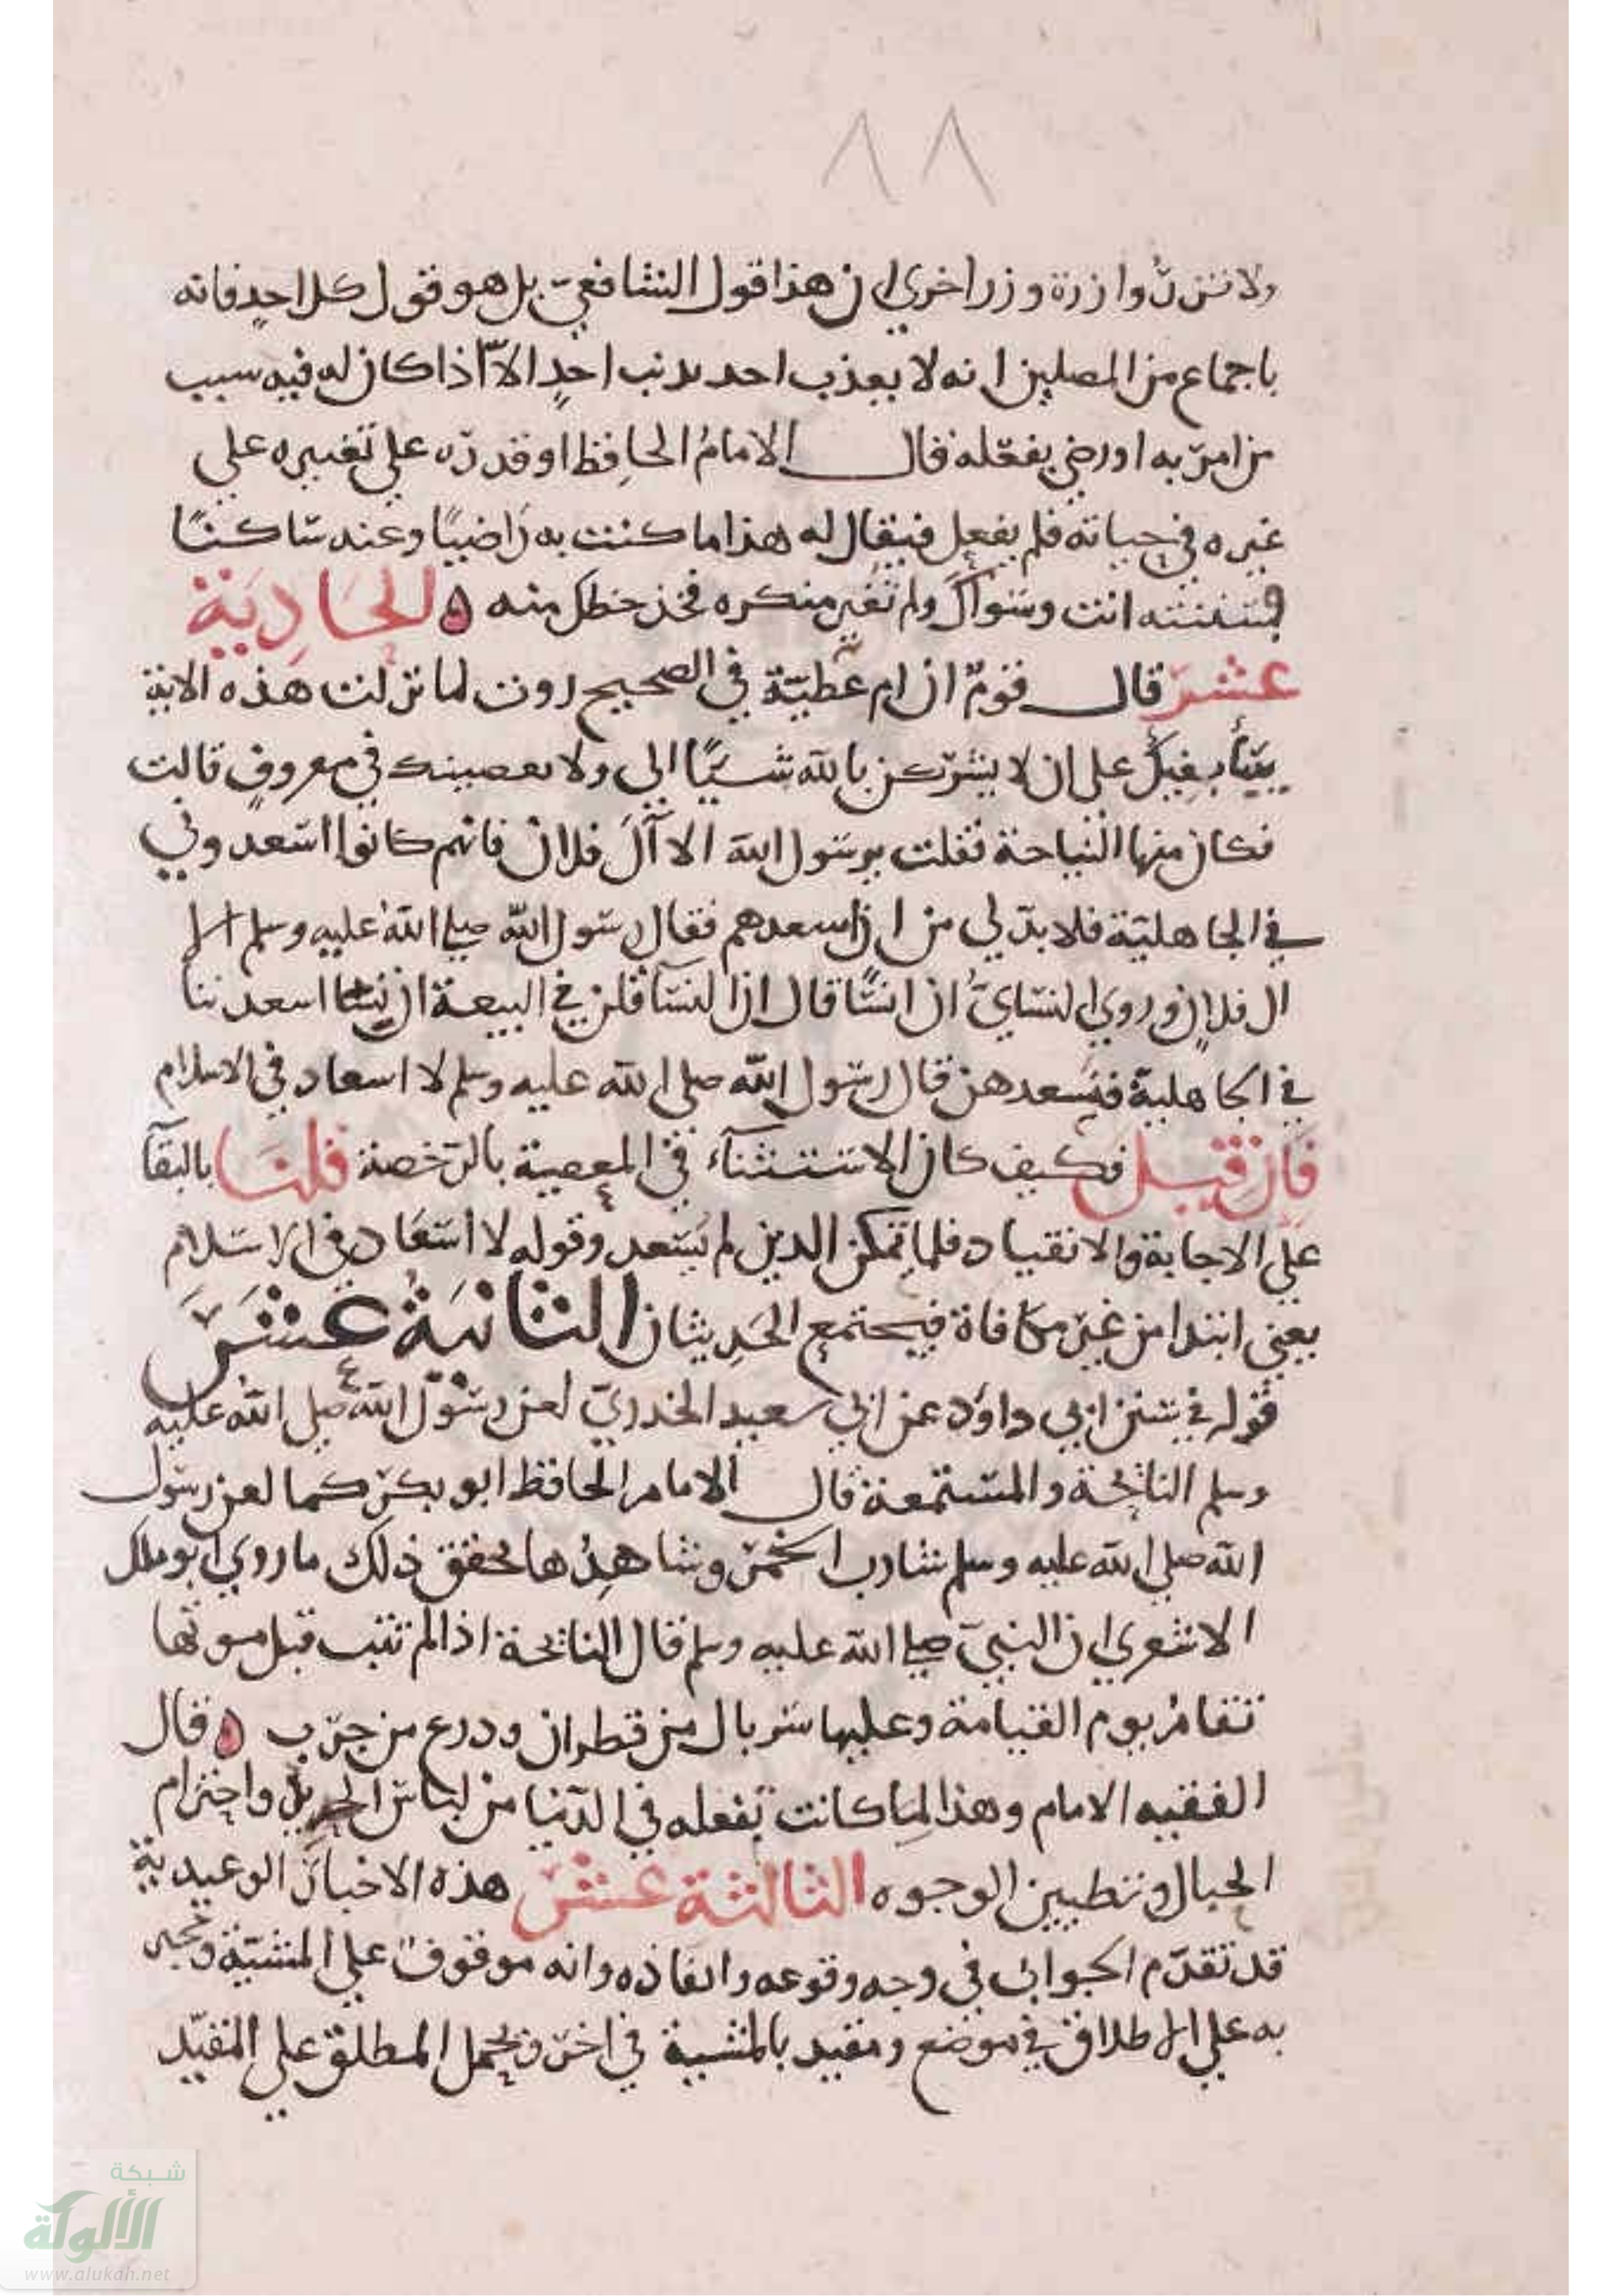 ٨٨
ولا تزر وازرة وزر اخري ان هذا قول الشافعي بل هو قول كل احد فانه
باجماع من المصلين انه لا يعذب احد بذنب احد الا اذا كان له فيه سبب
من امر به او رضي بفعله قال الامام الحافظ او قدره علي تغييره علي
غيره في حياته فلم يفعل فيقال له هذا ما كنت به راضيا وعنه ساكتا
انت وسواك ولم تغير منكره فخذ حظك منه ه الحادية
عشر قال قوم ان ام عطية في الصحيح روت لما نزلت هذه الاية
يبايعنك على ان لا يشركن بالله شيئا الى ولا يعصينك في معروف قالت
فكان منها النياحة فقلت يرسول الله الا آل فلان فانهم كانوا اسعدوني
في الجاهلية فلا بد لي من ان اسعدهم فقال رسول الله صلي الله عليه وسلم الا
ال فلان وروي النساي ان انسا قال ان النسا قلن في البيعة ان نسا اسعدننا
في الجاهلية فنسعدهن قال رسول الله صلى الله عليه وسلم لا اسعاد في الاسلام
فان قيل فكيف كان الاستثناء في المعصية بالرخصة قلنا بالبقآ
علي الاجابة والانقياد فلما تمكن الدين لم يسعد وقوله لا اسعاد في الاسلام
يعني ابتدا من غير مكافاة فيجتمع الحديثان الثانية عشر
قوله في سنن ابي داود عن ابي سعيد الخدري لعن رسول الله صلي الله عليه
وسلم النائحة والمستمعة قال الامام الحافظ ابو بكر كما لعن رسول
الله صلي الله عليه وسلم شارب الخمر وشاهدها يحقق ذلك ما روي ابو ملك
الاشعري ان النبي صلي الله عليه وسلم قال النائحة اذا لم تتب قبل موتها
تقام يوم القيامة وعليها سربال من قطران ودرع من جرب ه قال
الفقيه الامام وهذا لما كانت تفعله في الدنيا من لباس واحتزام
الحبال وتطيين الوجوه الثالثة عشر هذه الاخبار الوعيدية
قد تقدم الجواب في وجه وقوعه وانفاذه وانه موقوف علي المشية
به علي الاطلاق في موضع ومقيد بالمشية في اخر ويحمل المطلق علي المقيد
شبكة
الألوكة
www.alukah.net